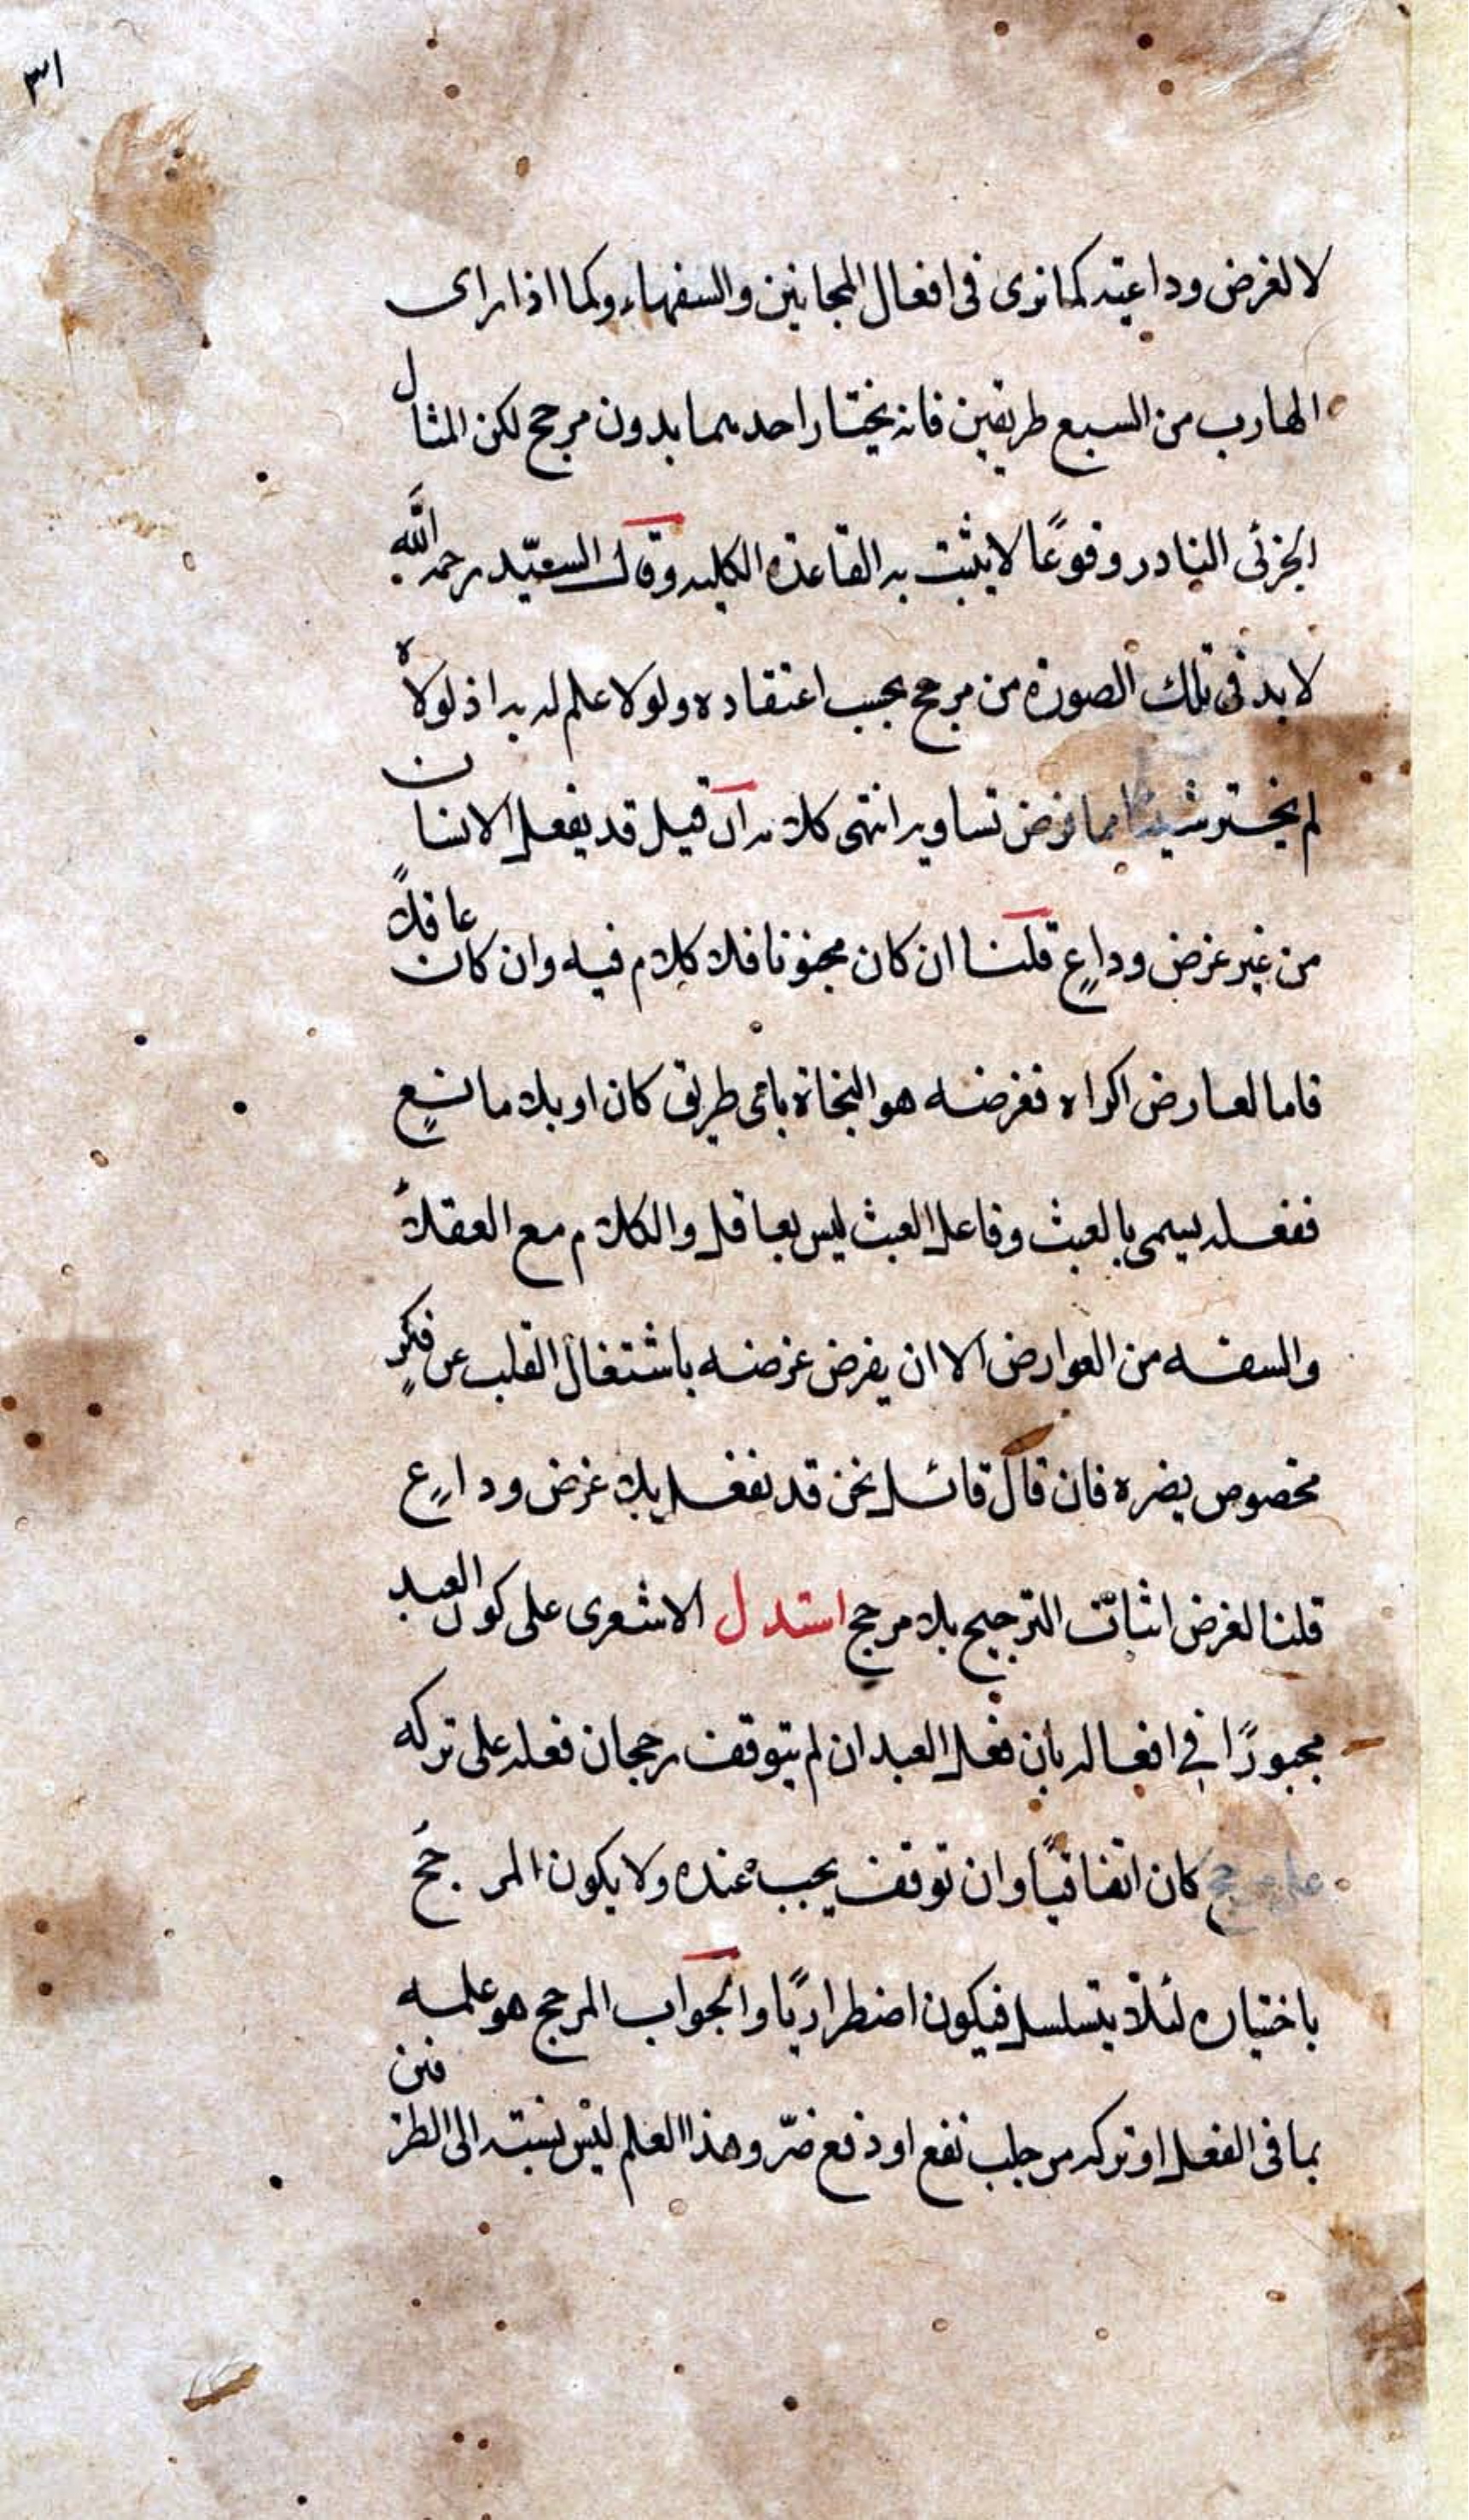 ٣١
لا لغرض وداعيته كما نرى فى افعال المجانين والسفهاء وكما اذا راى
الهارب من السبع طريقين فانه يختار احدهما بدون مرجح لكن المثال
الجزئى النادر وقوعًا لا يثبت به القاعدة الكليه وقال السيّد رحمه اللّه
لا بد فى تلك الصورة من مرجح بحسب اعتقاده ولولا علم له به اذ لولاه
لم يختر شيئا مما فرض تساويه انتهى كلامه ان قيل قد يفعل الانسان
من غير غرض وداعٍ قلنا ان كان مجنونا فلا كلام فيه وان كان عاقلاً
فاما لعارض اكراه فغرضه هو النجاة باى طريق كان او بلا مانعٍ
ففعله يسمى بالعبث وفاعل العبث ليس بعاقل والكلام مع العقلاء
والسفه من العوارض الا ان يفرض غرضه باشتغال القلب عن فكرٍ
مخصوص يضره فان قال قائل نحن قد نفعل بلا غرض وداعٍ
قلنا لغرض اثبات الترجيح بلا مرجح استدل الاشعرى على كون العبد
مجبورًا في افعاله بان فعل العبد ان لم يتوقف رجحان فعله على تركه
على مرجح كان اتفاقيًا وان توقف يجب عنده ولا يكون المرجح
باختياره لئلا يتسلسل فيكون اضطراريًا والجواب المرجح هو علمه
بما فى الفعل او تركه من جلب نفع او دفع ضرّ وهذا العلم ليس نسبته الى الطرفين